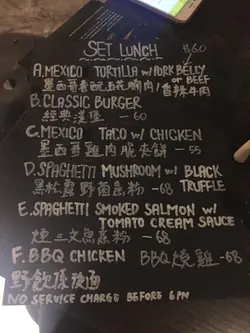 SET LUNCH
$60
A. MEXICO TORTILLA w/ PORK BELLY
or BEEF
墨西哥卷配五花腩肉/香辣牛肉
B. CLASSIC BURGER
經典漢堡 -60
C. MEXICO TACO w/ CHICKEN
墨西哥雞肉脆夾餅 -55
D. SPAGHETTI MUSHROOM w/ BLACK
TRUFFLE
黑松露野菌意粉 -68
E. SPAGHETTI SMOKED SALMON w/
TOMATO CREAM SAUCE
煙三文魚意粉 -68
F. BBQ CHICKEN BBQ燒雞 -68
NO SERVICE CHARGE BEFORE 6PM